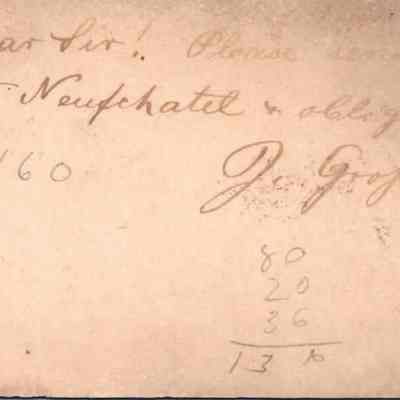 ar Sir! Please
Neufchatel & oblig
160
J. Gros
80
20
36
13